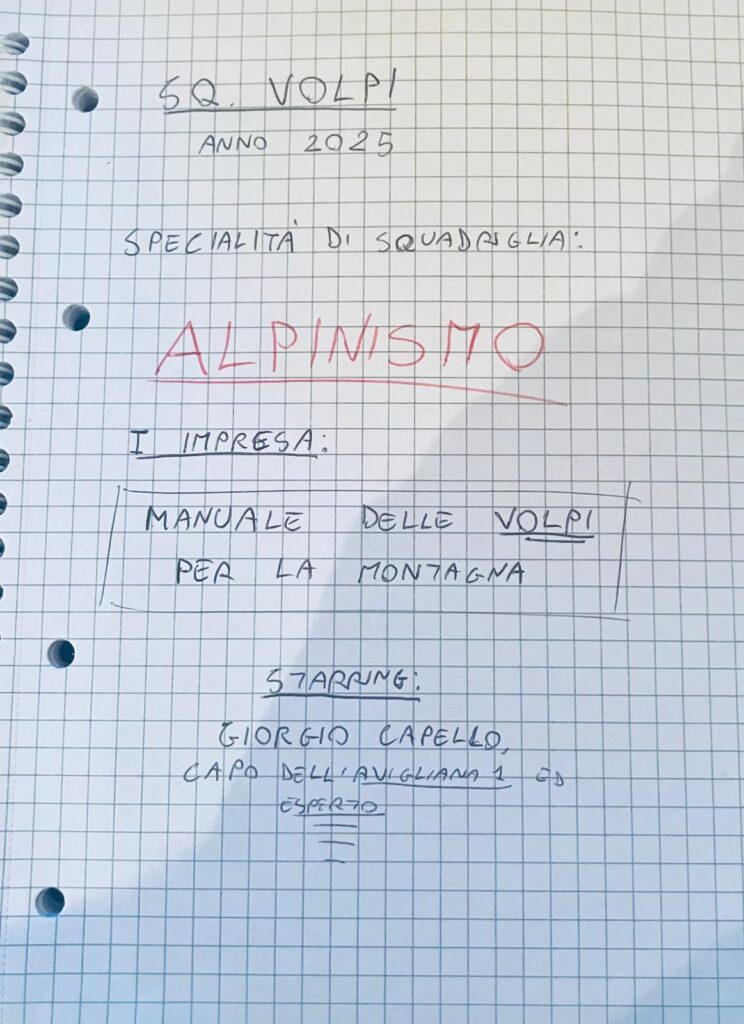 SQ. VOLPI
ANNO 2025
SPECIALITÀ DI SQUADRIGLIA:
ALPINISMO
I IMPRESA:
MANUALE DELLE VOLPI
PER LA MONTAGNA
STARRING:
GIORGIO CAPELLO,
CAPO DELL'AVIGLIANA 1 ED
ESPERTO